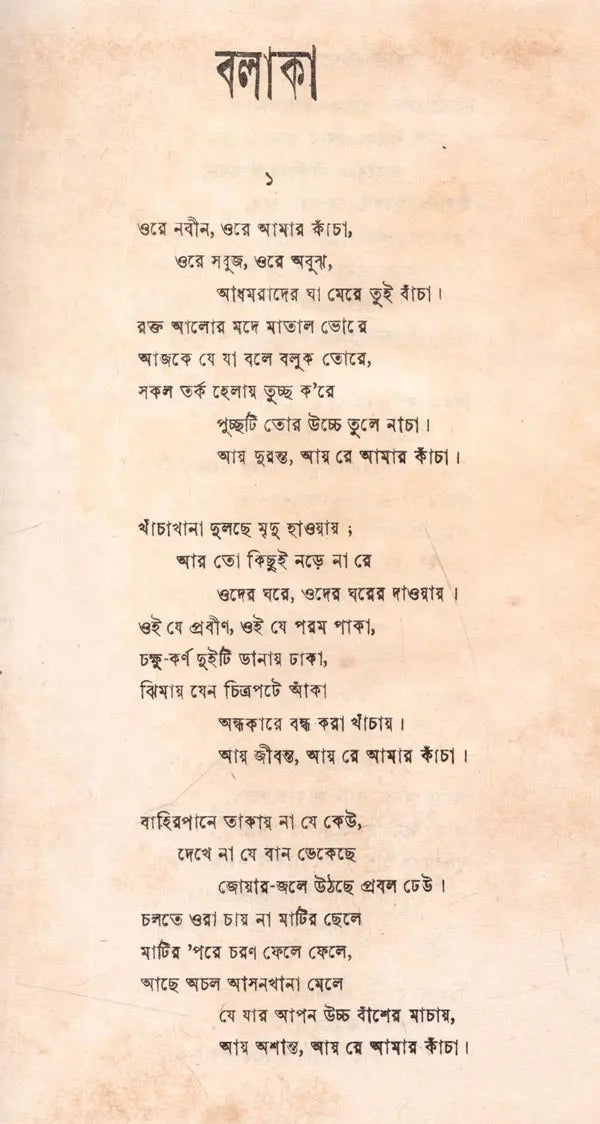 বলাকা
১
ওরে নবীন, ওরে আমার কাঁচা,
ওরে সবুজ, ওরে অবুঝ,
আধমরাদের ঘা মেরে তুই বাঁচা।
রক্ত আলোর মদে মাতাল ভোরে
আজকে যে যা বলে বলুক তোরে,
সকল তর্ক হেলায় তুচ্ছ ক'রে
পুচ্ছটি তোর উচ্চে তুলে নাচা।
আয় দুরন্ত, আয় রে আমার কাঁচা।
খাঁচাখানা দুলছে মৃদু হাওয়ায়;
আর তো কিছুই নড়ে না রে
ওদের ঘরে, ওদের ঘরের দাওয়ায়।
ওই যে প্রবীণ, ওই যে পরম পাকা,
চক্ষু-কর্ণ দুইটি ডানায় ঢাকা,
ঝিমায় যেন চিত্রপটে আঁকা
অন্ধকারে বন্ধ করা খাঁচায়।
আয় জীবন্ত, আয় রে আমার কাঁচা।
বাহিরপানে তাকায় না যে কেউ,
দেখে না যে বান ডেকেছে
জোয়ার-জলে উঠছে প্রবল ঢেউ।
চলতে ওরা চায় না মাটির ছেলে
মাটির 'পরে চরণ ফেলে ফেলে,
আছে অচল আসনখানা মেলে
যে যার আপন উচ্চ বাঁশের মাচায়,
আয় অশান্ত, আয় রে আমার কাঁচা।